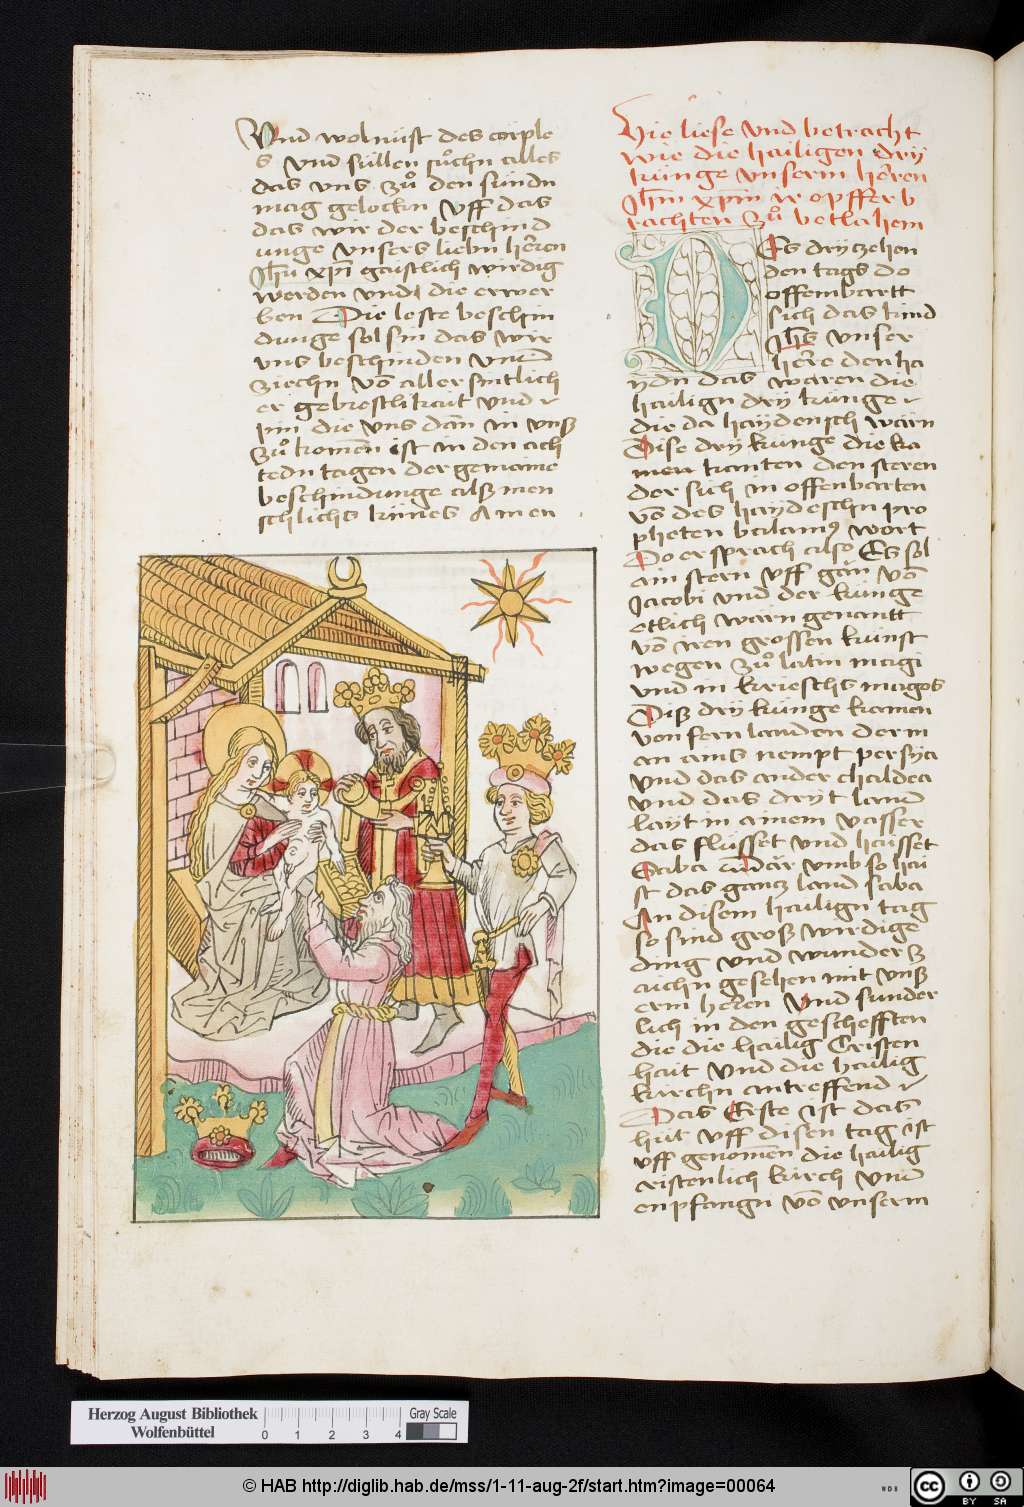 Vnd wolnust des cörple
s Vnd füllen sůchn alles
das vns zů den sündn
mag gelockn Vff das
das wir der beschnid
unge vnsers liebn herren
Jhu xpi gaistlich wirdig
werden vnd die erwer
ben Die leste beschin
dunge sol sin das wir
vns beschniden vnd
ziechn võ aller sintlich
er gebrestlikait vnd
pin die vns dan in vnß
zů komen ist in den ach
tedn tagen der gemaine
beschindunge alß men
schlichs künes Amen
Hie liese vnd betracht
wie die hailigen dry
künge vnserm herren
Jhm xpm ir opffer b
rachten zů betlahem
DEs dryzehen
den tags do
offembartt
sich das kind
Jhs vnser
herre den ha
ydn das waren die
hailign dry künge
die da haydensch wärn
Dise dry künge die ka
men kanten den steren
der sich in offenbarten
võ des haydeschn pro
pheten balams wort
Do er sprach also Es sol
ain stern vff gän võ
Jacobi vnd der künge
etlich wärn genantt
võ iren grossen kunst
wegen zů latin magi
vnd in kriechs magos
Diß dry künge kamen
von fern landen der in
an ains nempt persya
vnd das ander chaldea
vnd das dryt land
layt in ainem vasser
das flüsset vnd haisset
Saba vnd dar vmb so hai
st das gancz land saba
In disem hailign tag
so sind groß wirdige
ding vnd wunder z
aichn gesehen mit vnß
erm herren Vnd sunder
lich in den geschefften
die die hailig Cristen
hait vnd die hailig
kirchn antreffend
Das Erste ist das
hüt vff disen tag ist
vff genomen die hailig
cristenlich kirch vnd
enpfangn võ vnserm
Herzog August Bibliothek
Wolfenbüttel
0 1 2 3 4
Gray Scale
© HAB http://diglib.hab.de/mss/1-11-aug-2f/start.htm?image=00064
WDB
cc BY SA